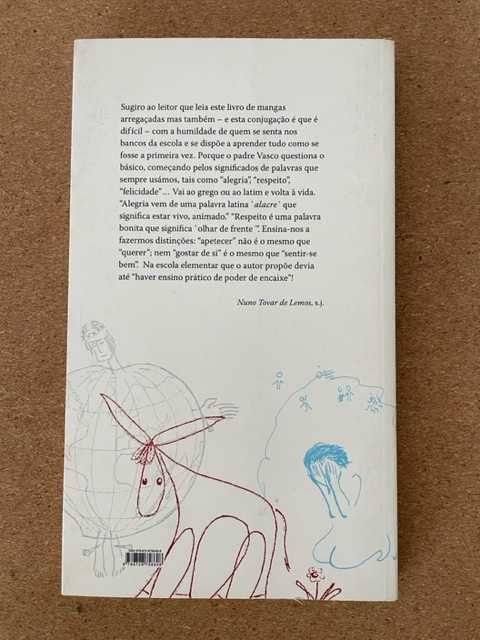 Sugiro ao leitor que leia este livro de mangas
arregaçadas mas também – e esta conjugação é que é
difícil – com a humildade de quem se senta nos
bancos da escola e se dispõe a aprender tudo como se
fosse a primeira vez. Porque o padre Vasco questiona o
básico, começando pelos significados de palavras que
sempre usámos, tais como "alegria", "respeito",
"felicidade"... Vai ao grego ou ao latim e volta à vida.
"Alegria vem de uma palavra latina ˋalacreˊ que
significa estar vivo, animado." "Respeito é uma palavra
bonita que significa ˋolhar de frenteˊ". Ensina-nos a
fazermos distinções: "apetecer" não é o mesmo que
"querer"; nem "gostar de si" é o mesmo que "sentir-se
bem". Na escola elementar que o autor propõe devia
até "haver ensino prático de poder de encaixe"!
Nuno Tovar de Lemos, s.j.